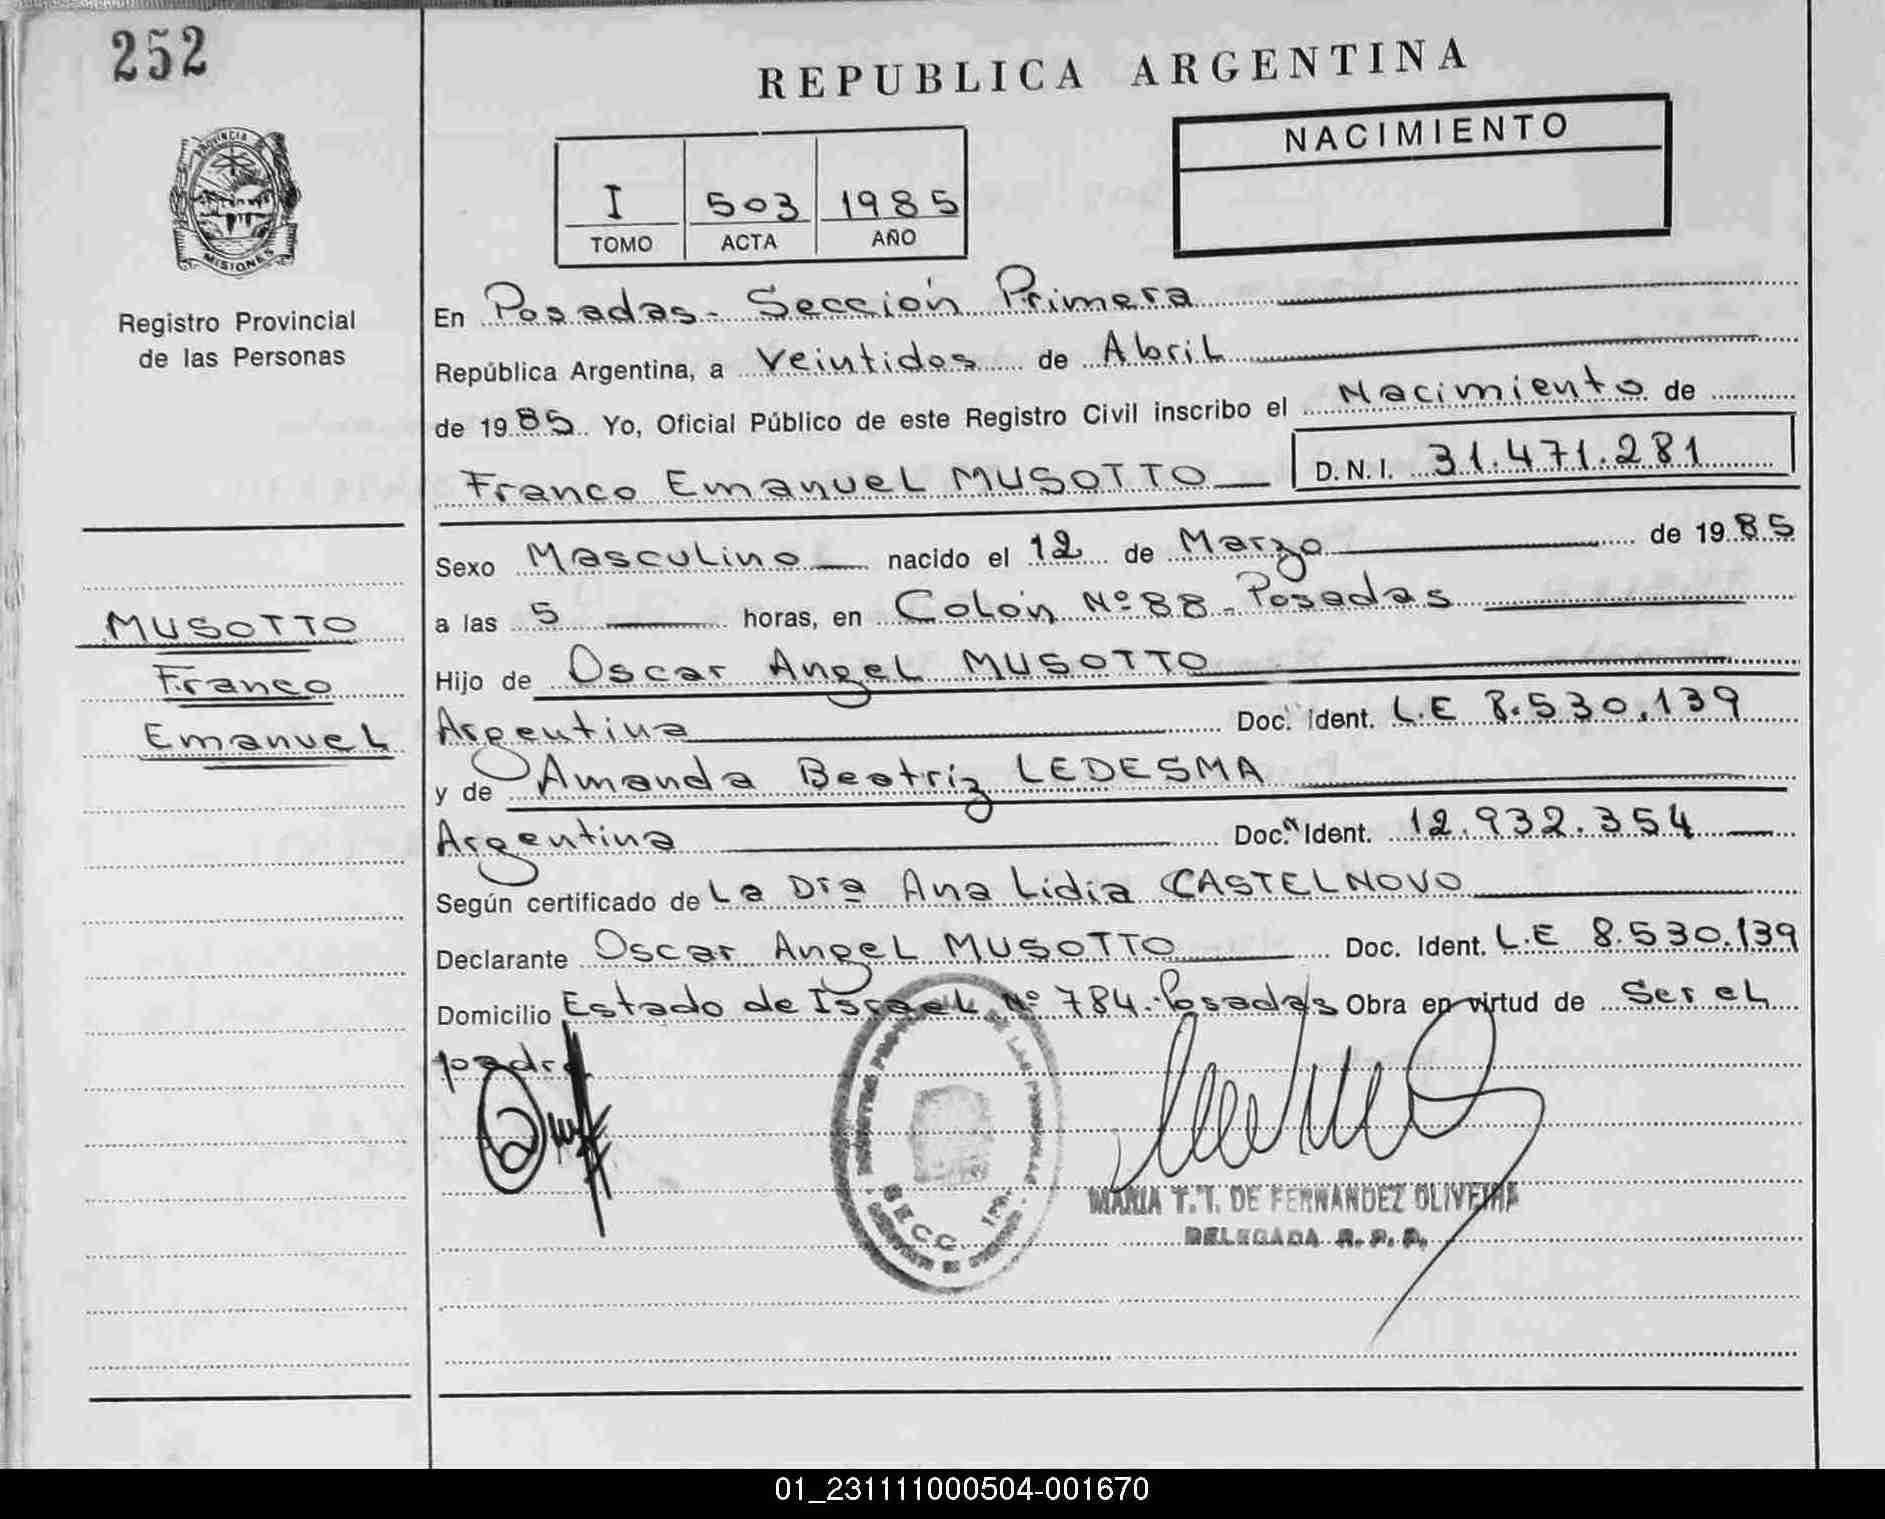 252
PROVINCIA
MISIONES
Registro Provincial
de las Personas
MUSOTTO
Franco
Emanuel
REPUBLICA ARGENTINA
I 503 1985
TOMO ACTA AÑO
NACIMIENTO
En Posadas - Sección Primera
República Argentina, a Veintidos de Abril
de 1985 Yo, Oficial Público de este Registro Civil inscribo el Nacimiento de
Franco Emanuel MUSOTTO D.N.I. 31.471.281
Sexo Masculino nacido el 12 de Marzo de 1985
a las 5 horas, en Colón Nº 88 - Posadas
Hijo de Oscar Angel MUSOTTO
Argentina Doc. Ident. L.E 8.530.139
y de Amanda Beatriz LEDESMA
Argentina Doc. Ident. 12.932.354
Según certificado de La Dra Ana Lidia CASTELNOVO
Declarante Oscar Angel MUSOTTO Doc. Ident. L.E 8.530.139
Domicilio Estado de Israel Nº 784. Posadas Obra en virtud de Ser el
padre
DE LAS PERSONAS
SECC. 1RA.
MARIA T. T. DE FERNANDEZ OLIVEIRA
DELEGADA R. P. P.
01_231111000504-001670